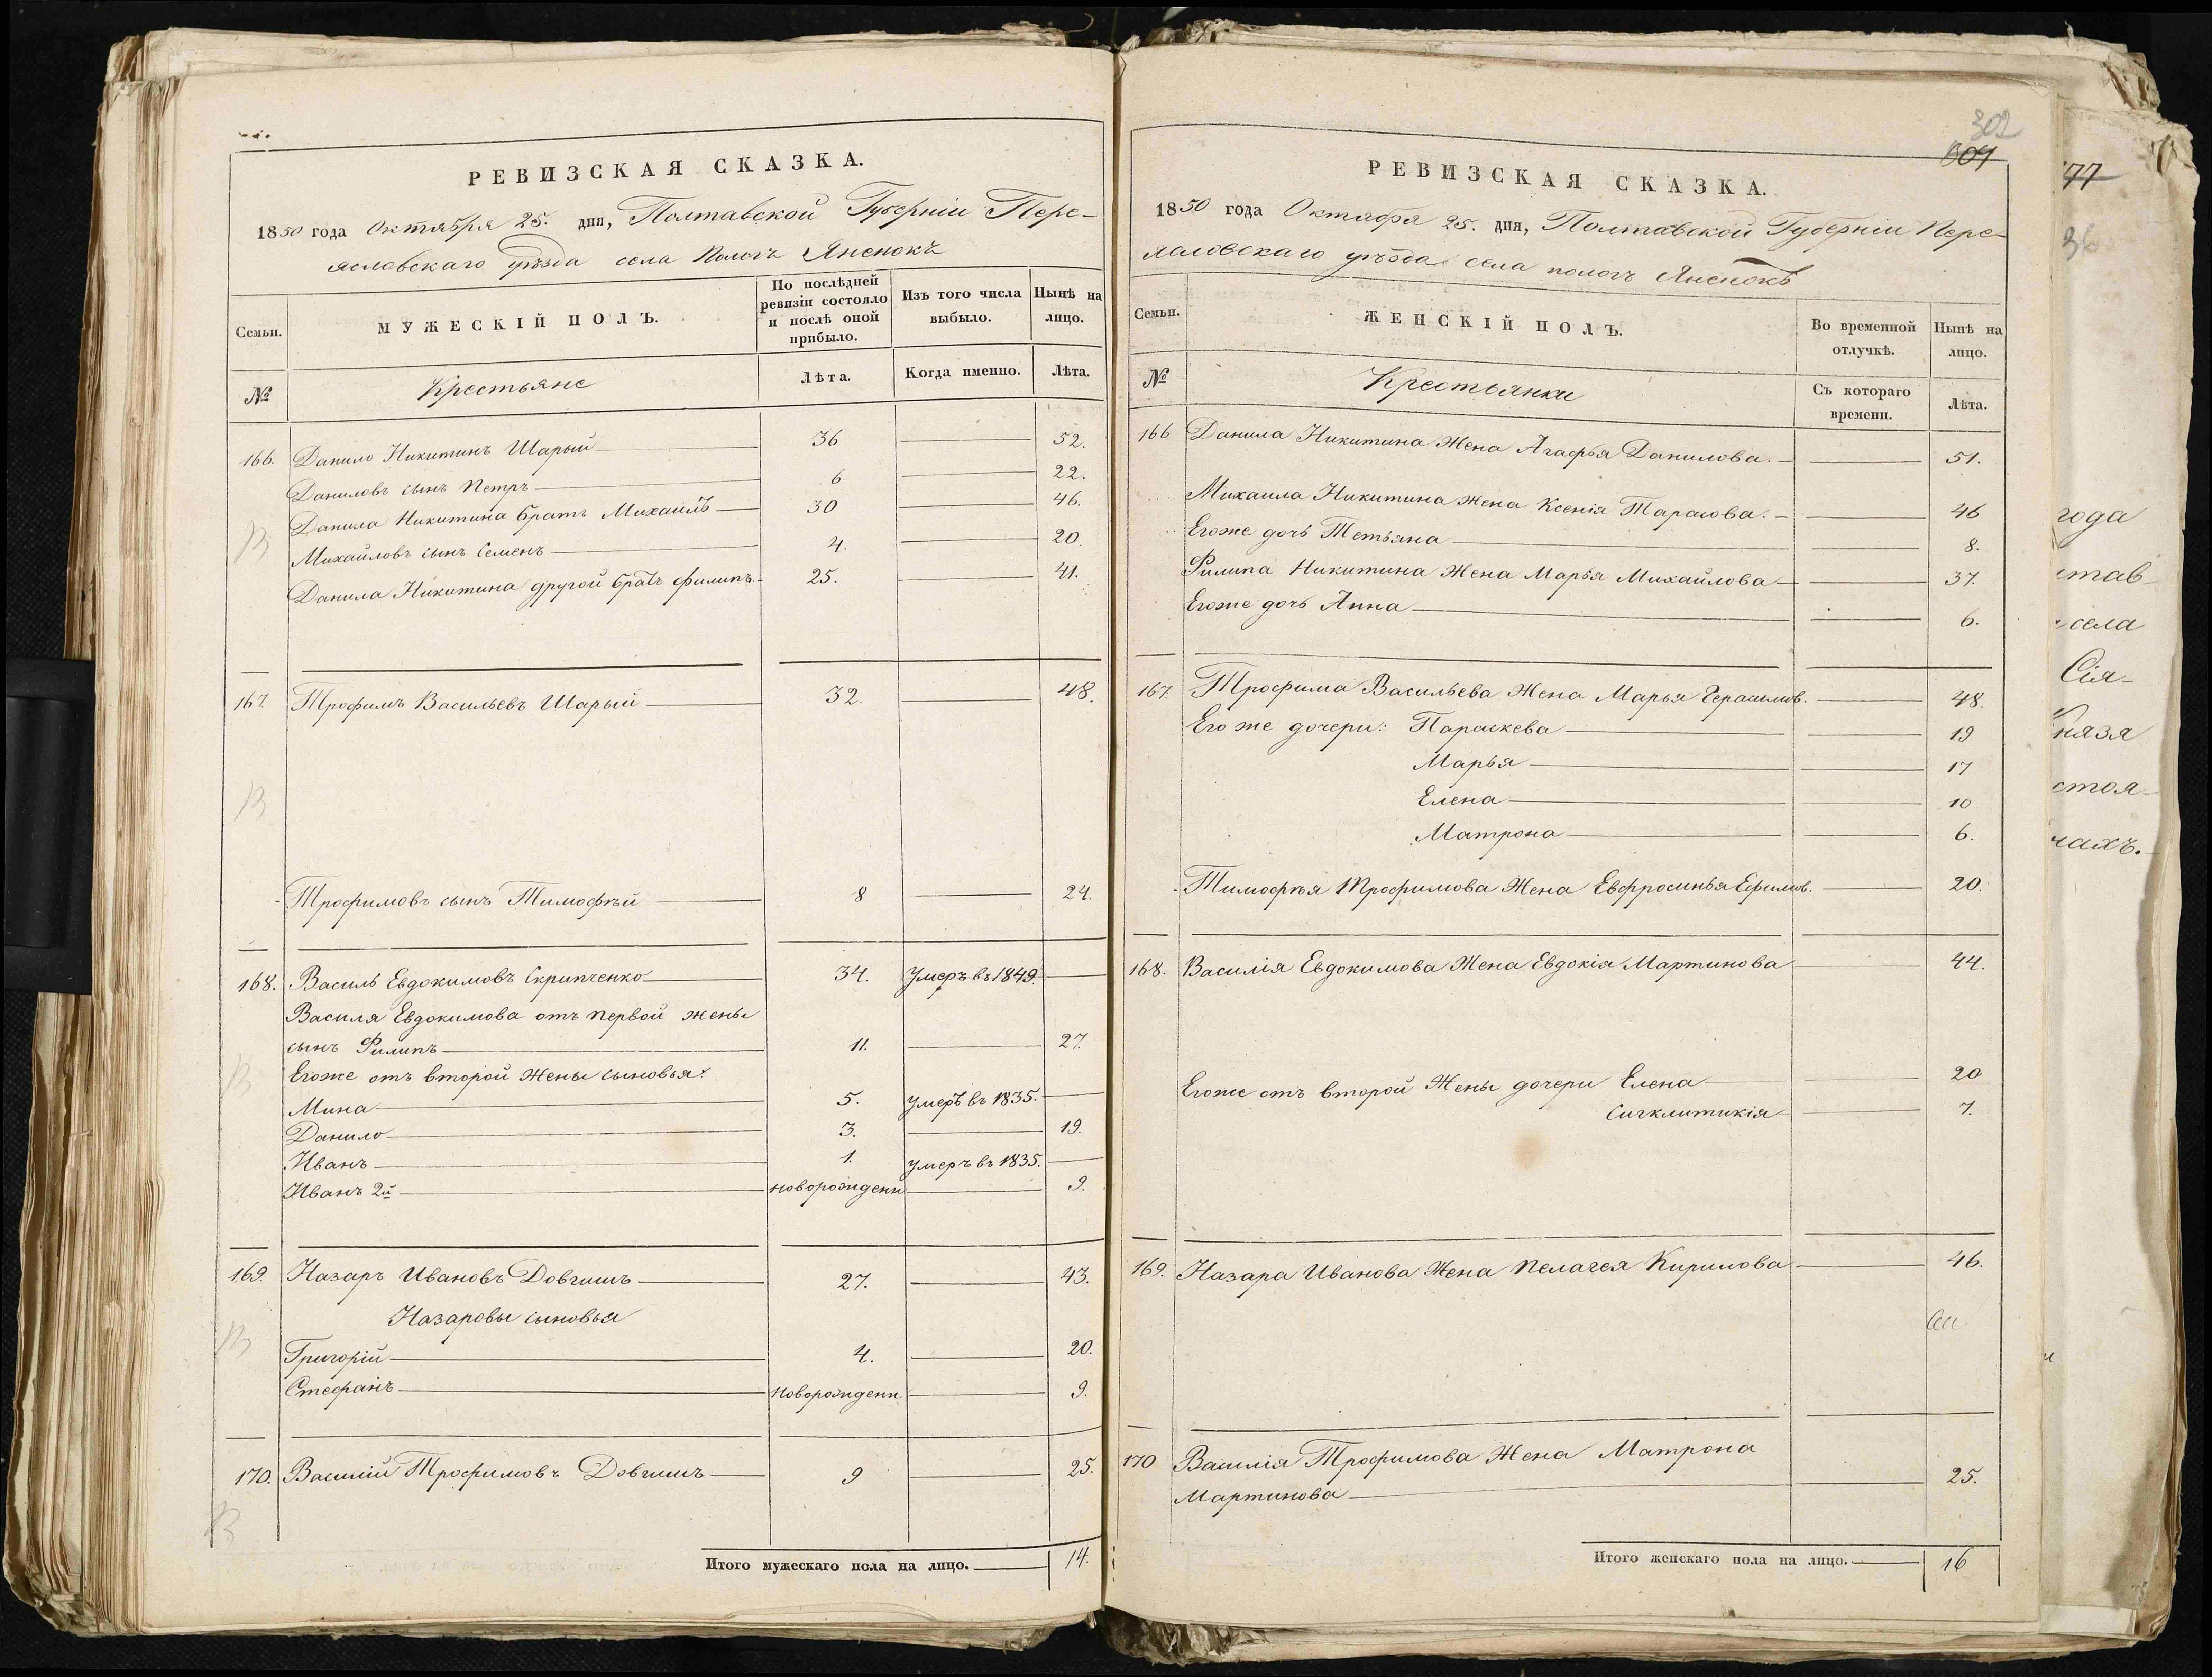 РЕВИЗСКАЯ СКАЗКА.
1850 года Октября 25. дня, Полтавской Губерніи Пере-
яславскаго уѣзда села Пологъ Яненокъ
Семьи.
МУЖЕСКІЙ ПОЛЪ.
По послѣдней ревизіи состояло и послѣ оной прибыло.
Изъ того числа выбыло.
Нынѣ на лицо.
№
Крестьяне
Лѣта.
Когда именно.
Лѣта.
166. Данило Никитинъ Шарый 36 52.
Даниловъ сынъ Петръ 6 22.
Данила Никитина братъ Михаилъ 30 46.
Михайловъ сынъ Семенъ 4. 20
Данила Никитина другой братъ Филипъ. 25. 41.
167. Трофимъ Васильевъ Шарый 32. 48.
Трофимовъ сынъ Тимофѣй 8 24.
168. Василь Евдокимовъ Скрипченко 34. Умеръ въ 1849.
Василя Евдокимова отъ первой жены
сынъ Филипъ 11. 27.
Егоже отъ второй Жены сыновья:
Мина 5. умеръ въ 1835.
Данило 3. 19.
Иванъ 1. умеръ въ 1835.
Иванъ 2й новорожденн 9.
169. Назаръ Ивановъ Довгишъ 27. 43.
Назаровы сыновья
Григорій 4. 20.
Стефанъ новорожденн 9.
170. Василій Трофимовъ Довгишъ 9 25.
Итого мужескаго пола на лицо. 14.
302
601
РЕВИЗСКАЯ СКАЗКА.
1850 года Октября 25. дня, Полтавской Губерніи Пере-
яславскаго уѣзда села пологъ Яненокъ
Семьи.
ЖЕНСКІЙ ПОЛЪ.
Во временной отлучкѣ.
Нынѣ на лицо.
№
Крестьянки
Съ котораго времени.
Лѣта.
166 Данила Никитина Жена Агафья Данилова. 51.
Михаила Никитина жена Ксенія Тарасова. 46
Егоже дочь Тетьяна 8.
Филипа Никитина Жена Марья Михайлова 37.
Егоже дочь Анна 6.
167. Трофима Васильева Жена Марья Герасимов. 48.
Его же дочери: Параскева 19
Марья 17
Елена 10
Матрона 6.
Тимофѣя Трофимова Жена Евфросинья Ефимов. 20.
168. Василія Евдокимова Жена Евдокія Мартинова 44.
Егоже отъ второй Жены дочери Елена 20
Сигклитикія 7.
169. Назара Иванова Жена Пелагея Кирилова 46.
170 Василія Трофимова Жена Матрона
Мартинова 25.
Итого женскаго пола на лицо. 16
77
36
года
тав-
села
Сія-
Князя
стоя-
чахъ.